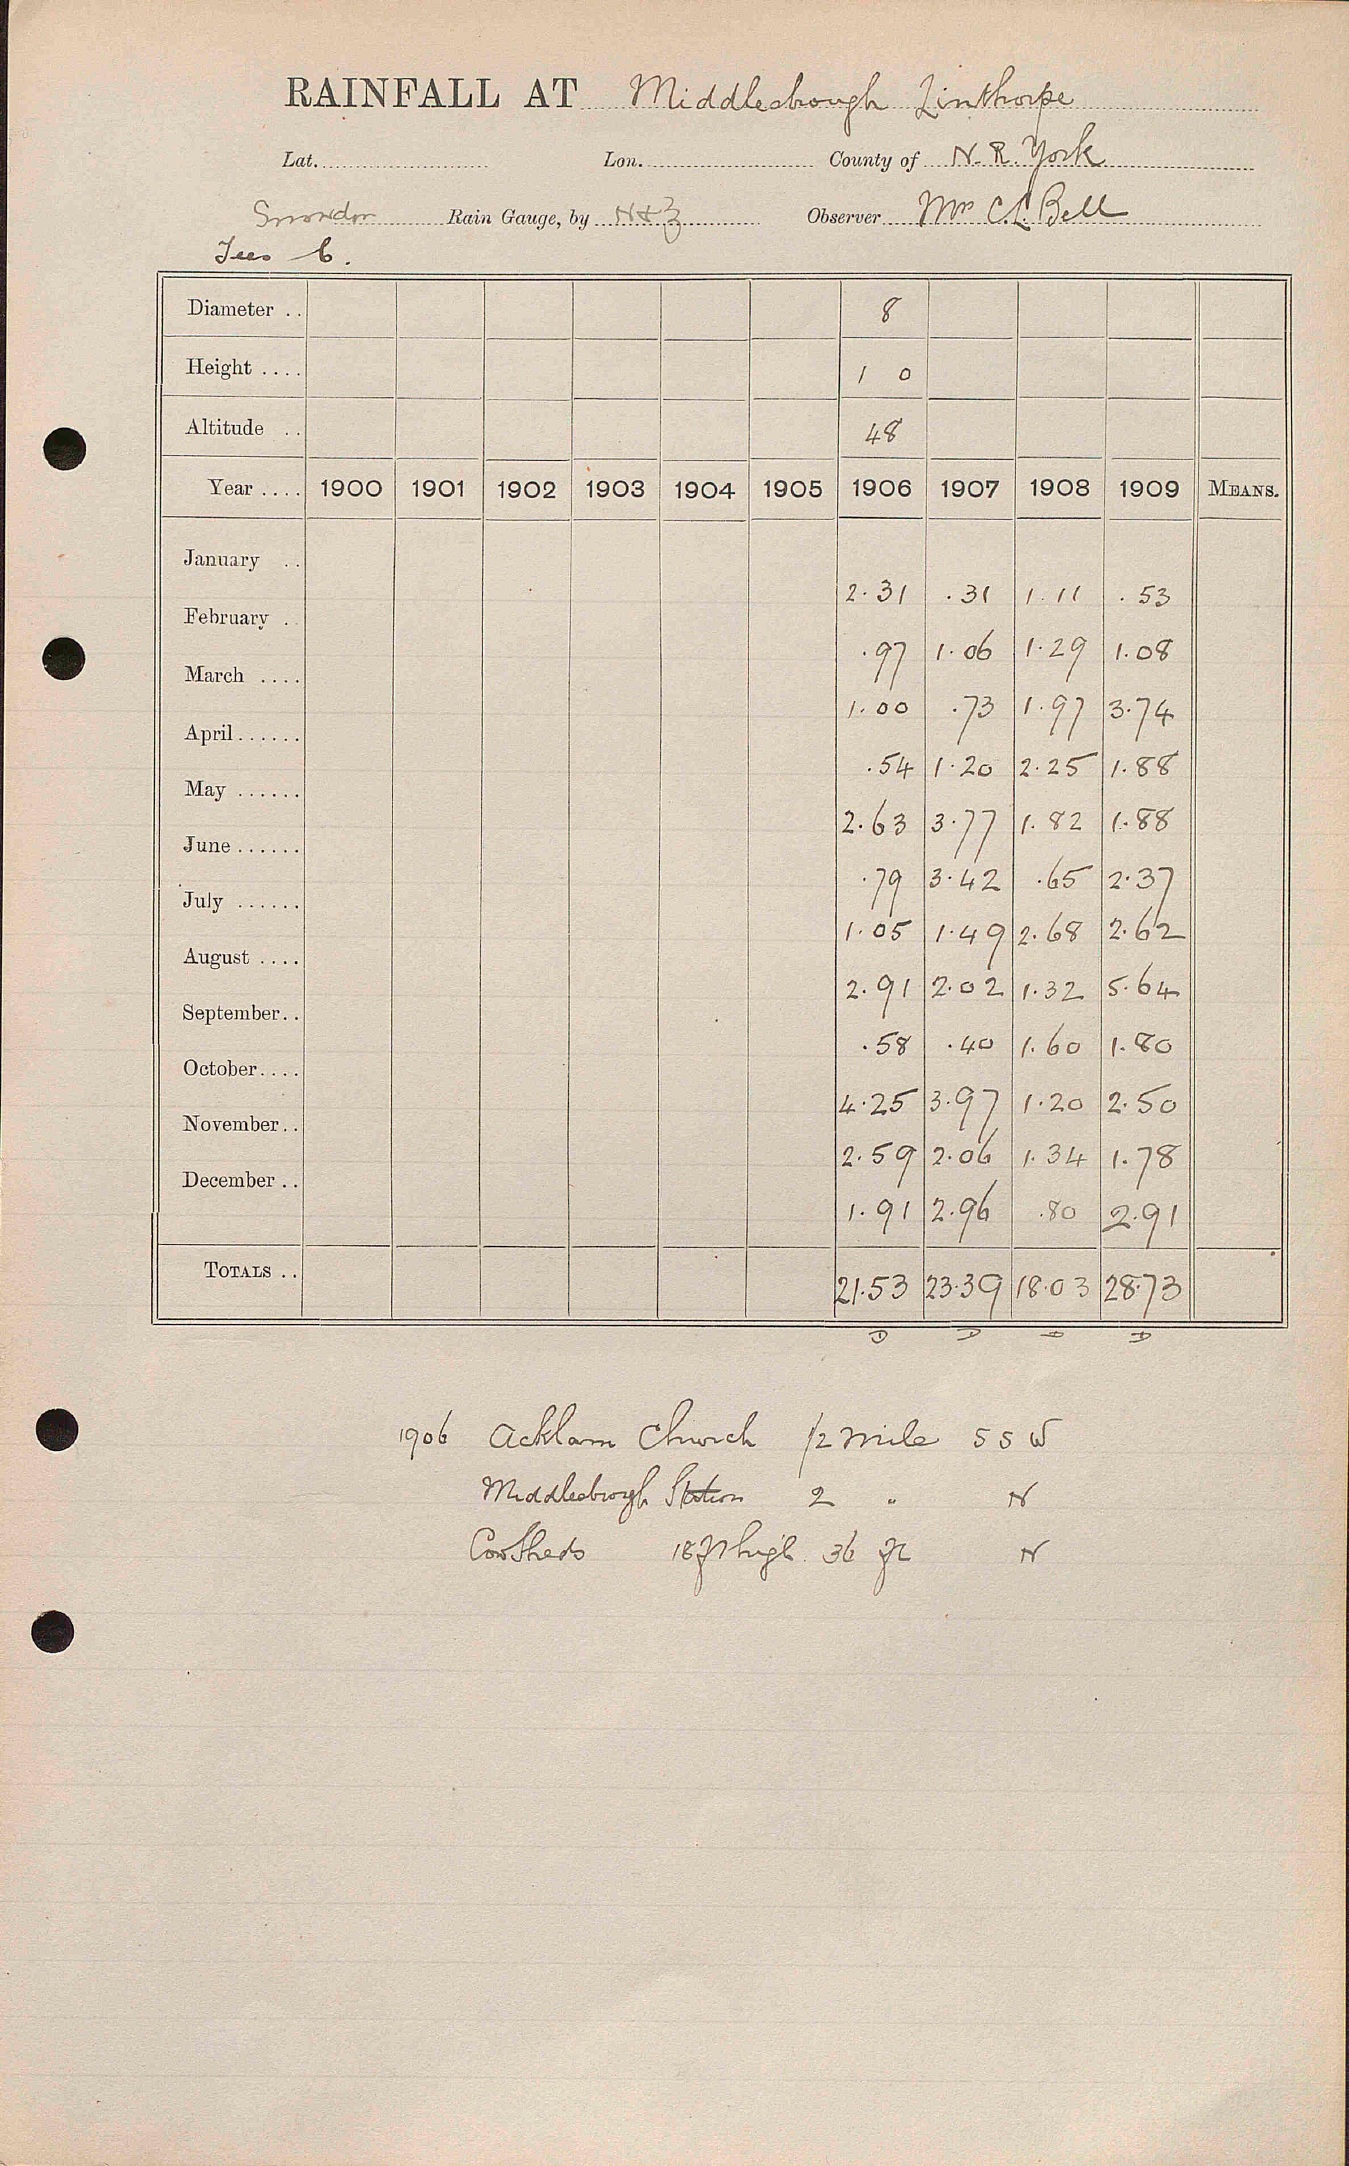 RAINFALL AT Middlesbrough Linthorpe
Lat. Lon. County of N. R. York
Snowdon Rain Gauge, by N & Z Observer Mr C. L. Bell
Tees C.
Diameter .. 8
Height .... 1 0
Altitude .. 48
Year .... 1900 1901 1902 1903 1904 1905 1906 1907 1908 1909 MEANS.
January .. 2.31 .31 1.11 .53
February .. .97 1.06 1.29 1.08
March .... 1.00 .73 1.97 3.74
April...... .54 1.20 2.25 1.88
May ...... 2.63 3.77 1.82 1.88
June...... .79 3.42 .65 2.37
July ...... 1.05 1.49 2.68 2.62
August .... 2.91 2.02 1.32 5.64
September.. .58 .40 1.60 1.80
October.... 4.25 3.97 1.20 2.50
November.. 2.59 2.06 1.34 1.78
December .. 1.91 2.96 .80 2.91
TOTALS .. 21.53 23.39 18.03 28.73
D D D D
1906 Acklam Church 1/2 mile S S W
Middlesbrough Station 2 " N
Cowsheds 18 ft high 36 ft N